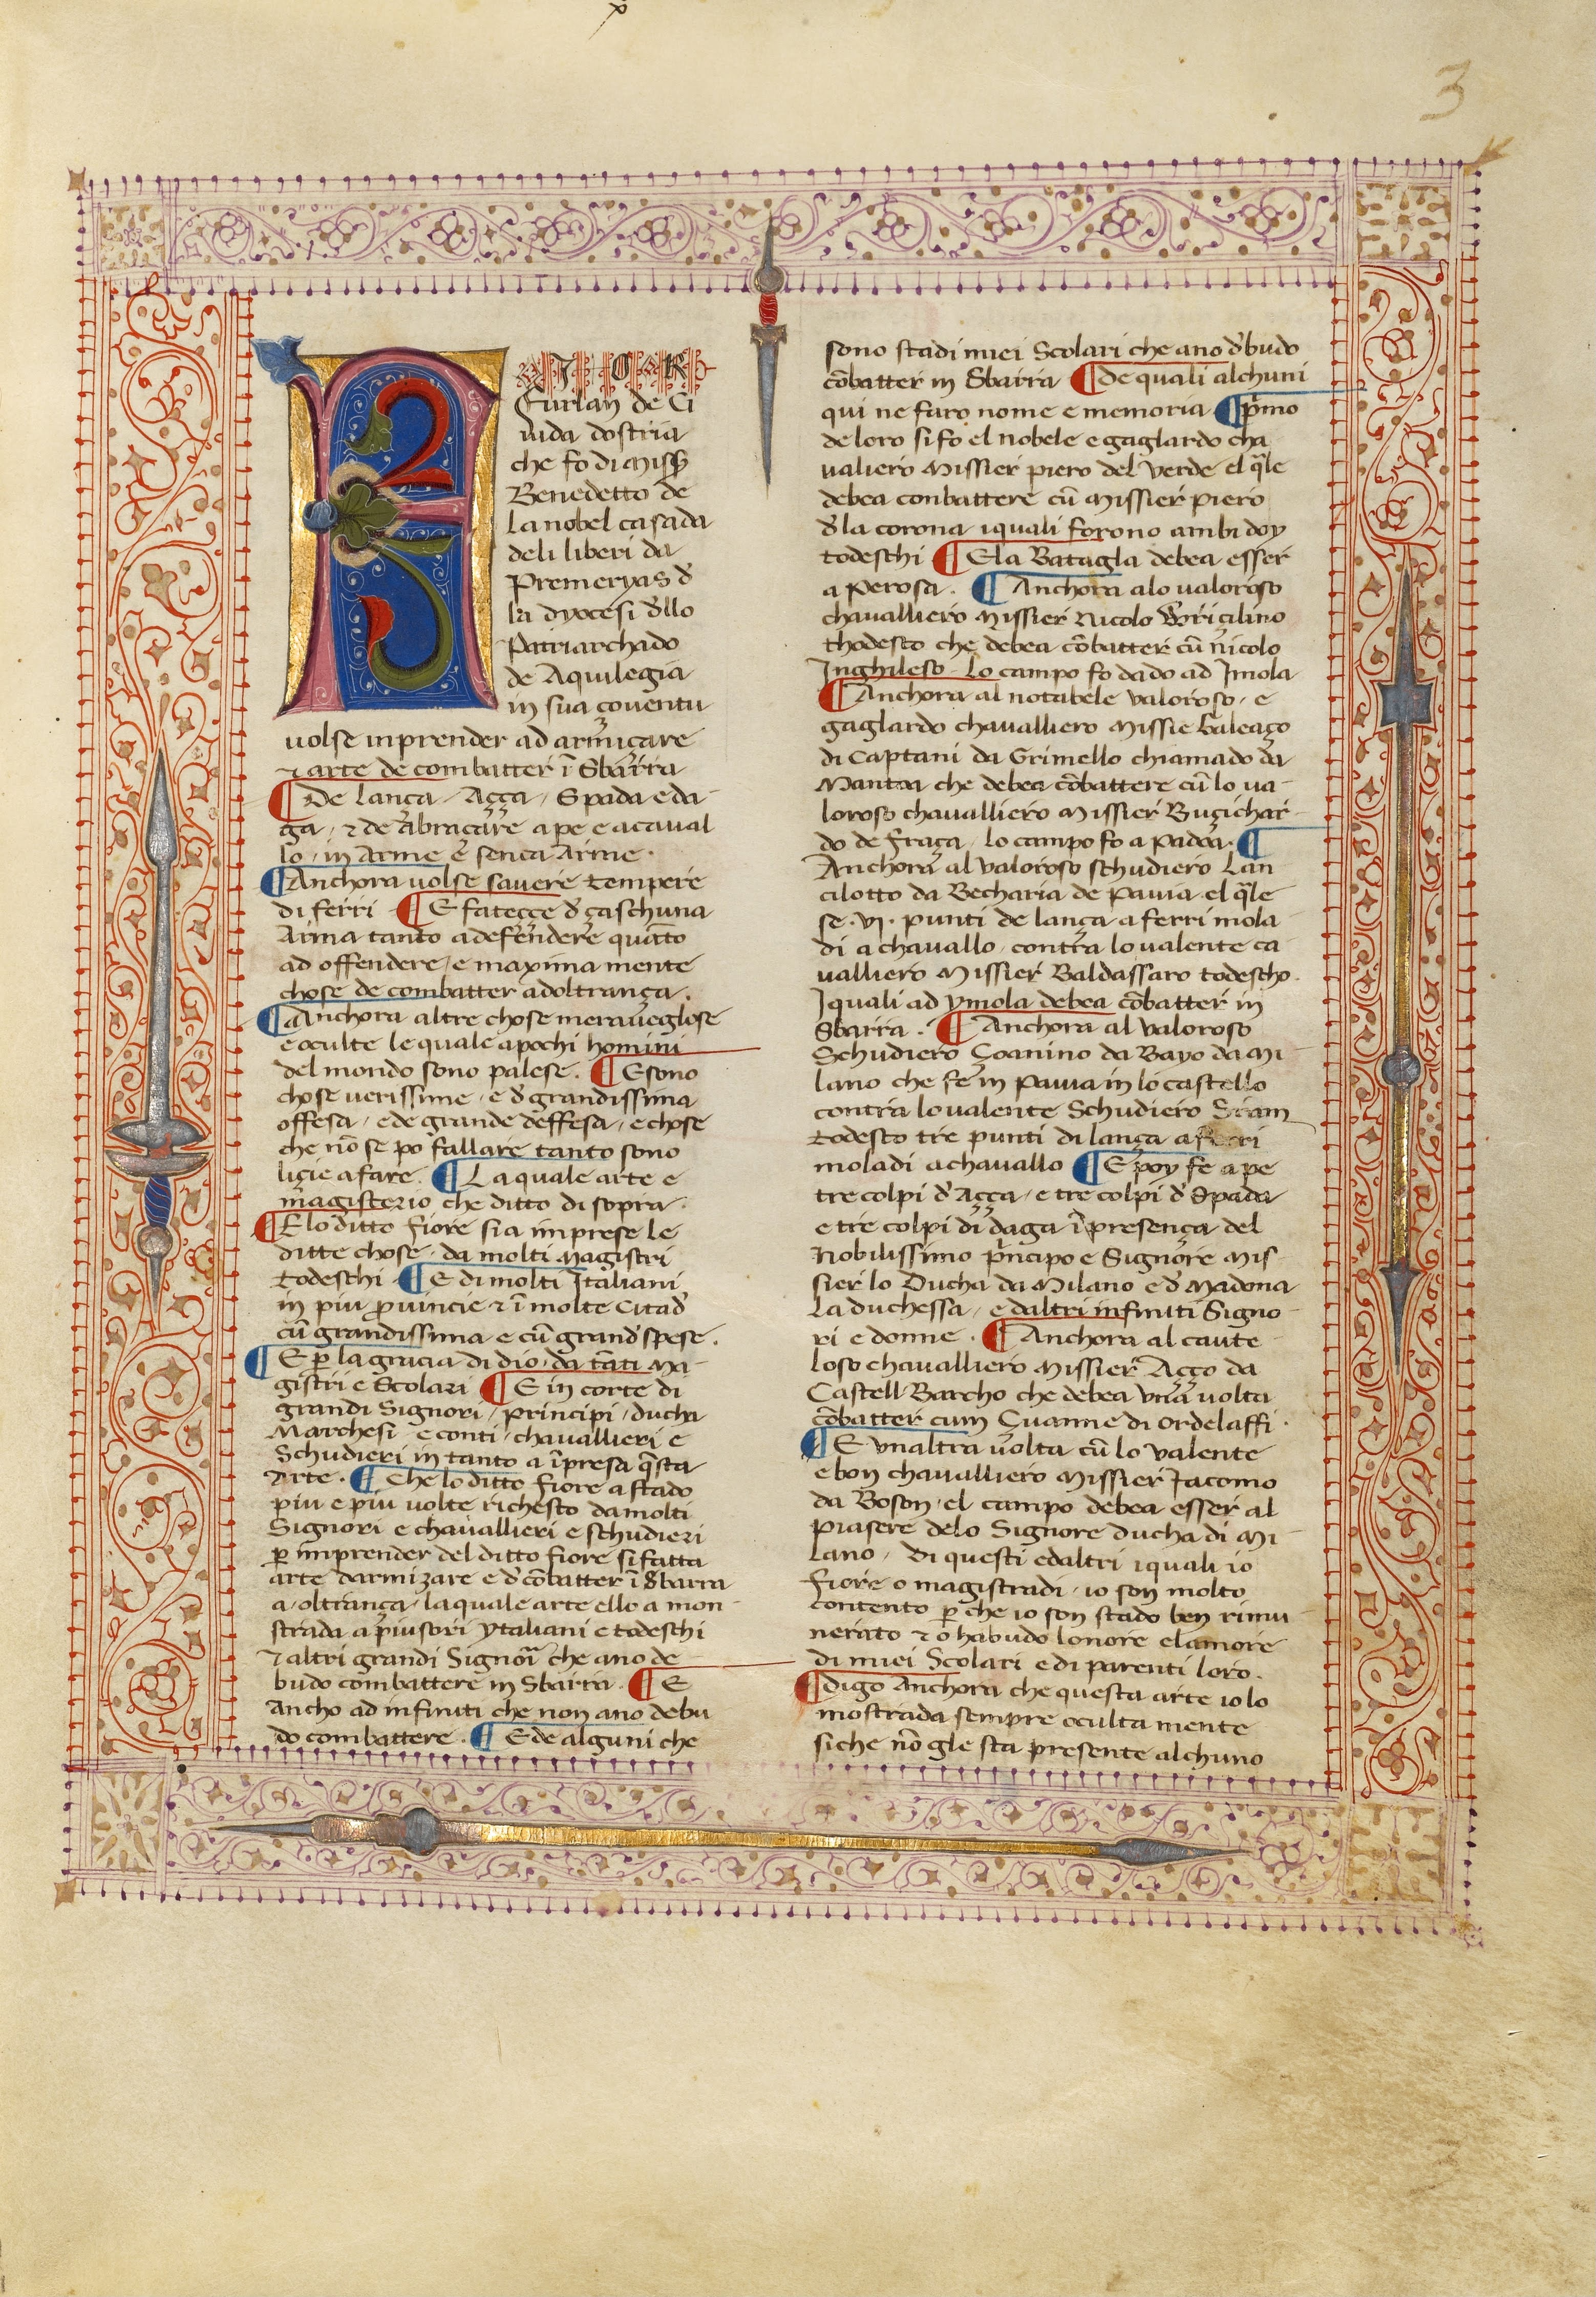 3
FIOR
Furlan de Ci
vida dostria
che fo di miss̃
Benedetto de
la nobel casada
deli liberi da
Premeryas d̃
la dyocesi d̃llo
Patriarchado
de Aquilegia
in sua coventu
volse inprender ad armiçare
⁊ arte de combatter ĩ Sbarra
¶ De lança / Açça / Spada e da-
ga / ⁊ de abraçare a pe e acaval
lo / in Arme e senca Arme.
¶ Anchora volse savere tempere
di ferri ¶ E fateççe d̃ çaschuna
Arma tanto a defendere quãto
ad offendere / e maxima mente
chose de combatter adoltrança.
¶ Anchora altre chose meraveglose
e oculte le quale a pochi homini
del mondo sono palese. ¶ E sono
chose verissime / e d̃ grandissima
offesa / e de grande deffesa / e chose
che nõ se po fallare tanto sono
liçie a fare. ¶ La quale arte e
magisterio che ditto di sopra.
¶ E lo ditto fiore sia imprese le
ditte chose / da molti Magistri
todeschi. ¶ E di molti Italiani
in piu p̱vincie ⁊ ĩ molte Citad̃
cũ grandissima e cũ grand̃ spese.
¶ E p̱ la gracia di dio / da tãti Ma-
gistri e Scolari ¶ E in corte di
grandi Signori / principi / duchi
Marchesi e conti / chavallieri e
Schudieri in tanto a ĩpresa q̃sta
Arte. ¶ Che lo ditto fiore a stado
piu e piu volte richesto da molti
Signori e chavallieri e schudieri
p̱ imprender del ditto fiore si fatta
arte darmizare e d̃ cõbatter ĩ Sbarra
a / oltrança / laquale arte ello a mon-
strada a piusori ytaliani e todeschi
⁊ altri grandi Signori che ano de-
budo combattere in Sbarra. ¶ E
Ancho ad infiniti che non ano debu
do combattere. ¶ E de alguni che
sono stadi miei Scolari che ano d̃budo
cõbatter in Sbarra ¶ de quali alchuni
qui ne faro nome e memoria ¶ P̃mo
de loro si fo el nobele e gaglardo cha
valiero Missier piero del verde el q̃le
debea conbattere cũ Missier piero
d̃ la corona iquali forono ambi doy
todeschi ¶ E la Batagla debea esser
a Perosa. ¶ Anchora a lo valoroso
chavalliero Missier Nicolo voriçilino
thodesco che debea cõbatter cũ Nicolo
Inghileso. Lo campo fo dado ad Imola
¶ Anchora al notabele valoroso / e
gaglardo chavalliero Missie Galeaço
di Captani da Grimello chiamado da
Mantoa che debea cõbattere cũ lo va-
loroso chavalliero Missier Buçichar-
do de fraça / lo campo fo a Padoa. ¶
Anchora al valoroso schudiero Lan
cilotto da Becharia de Pavia el q̃le
fe .vj. punti de lança a ferri mola
di a chavallo / contra lo valente ca
valliero Missier Baldassaro todescho.
Iquali ad ymola debea cõbatter in
Sbarra. ¶ Anchora al valoroso
Schudiero Çoanino da Bayo da Mi-
lano che fe in Pavia in lo castello
contra lo valente Schudiero Sram
todesco tre punti di lança a ferri
moladi a chavallo ¶ E poy fe a pe
tre colpi d̃ Açça / e tre colpi d̃ Spada
e tre colpi di daga ĩ presença del
Nobilissimo p̃ncipo e Signore Mis
sier lo Ducha da Milano e d̃ Madona
la duchessa / e daltri infiniti Signo-
ri e donne. ¶ Anchora al caute-
loso chavalliero Missier Açço da
Castell Barcho che debea una volta
cõbatter cum Çuanne di Ordelaffi.
¶ E unaltra volta cũ lo valente
e bon chavalliero Missier Jacomo
da Boson / el campo debea esser al
piasere delo Signore ducha di Mi-
lano / Di questi edaltri iquali io
fiore o magistradi / io son molto
contento p̱ che io son stado ben rimu-
nerato ⁊ o habudo lonore elamore
di miei Scolari e di parenti loro.
¶ digo Anchora che questa arte io lo
mostrada sempre oculta mente
siche nõ gle sta presente alchuno